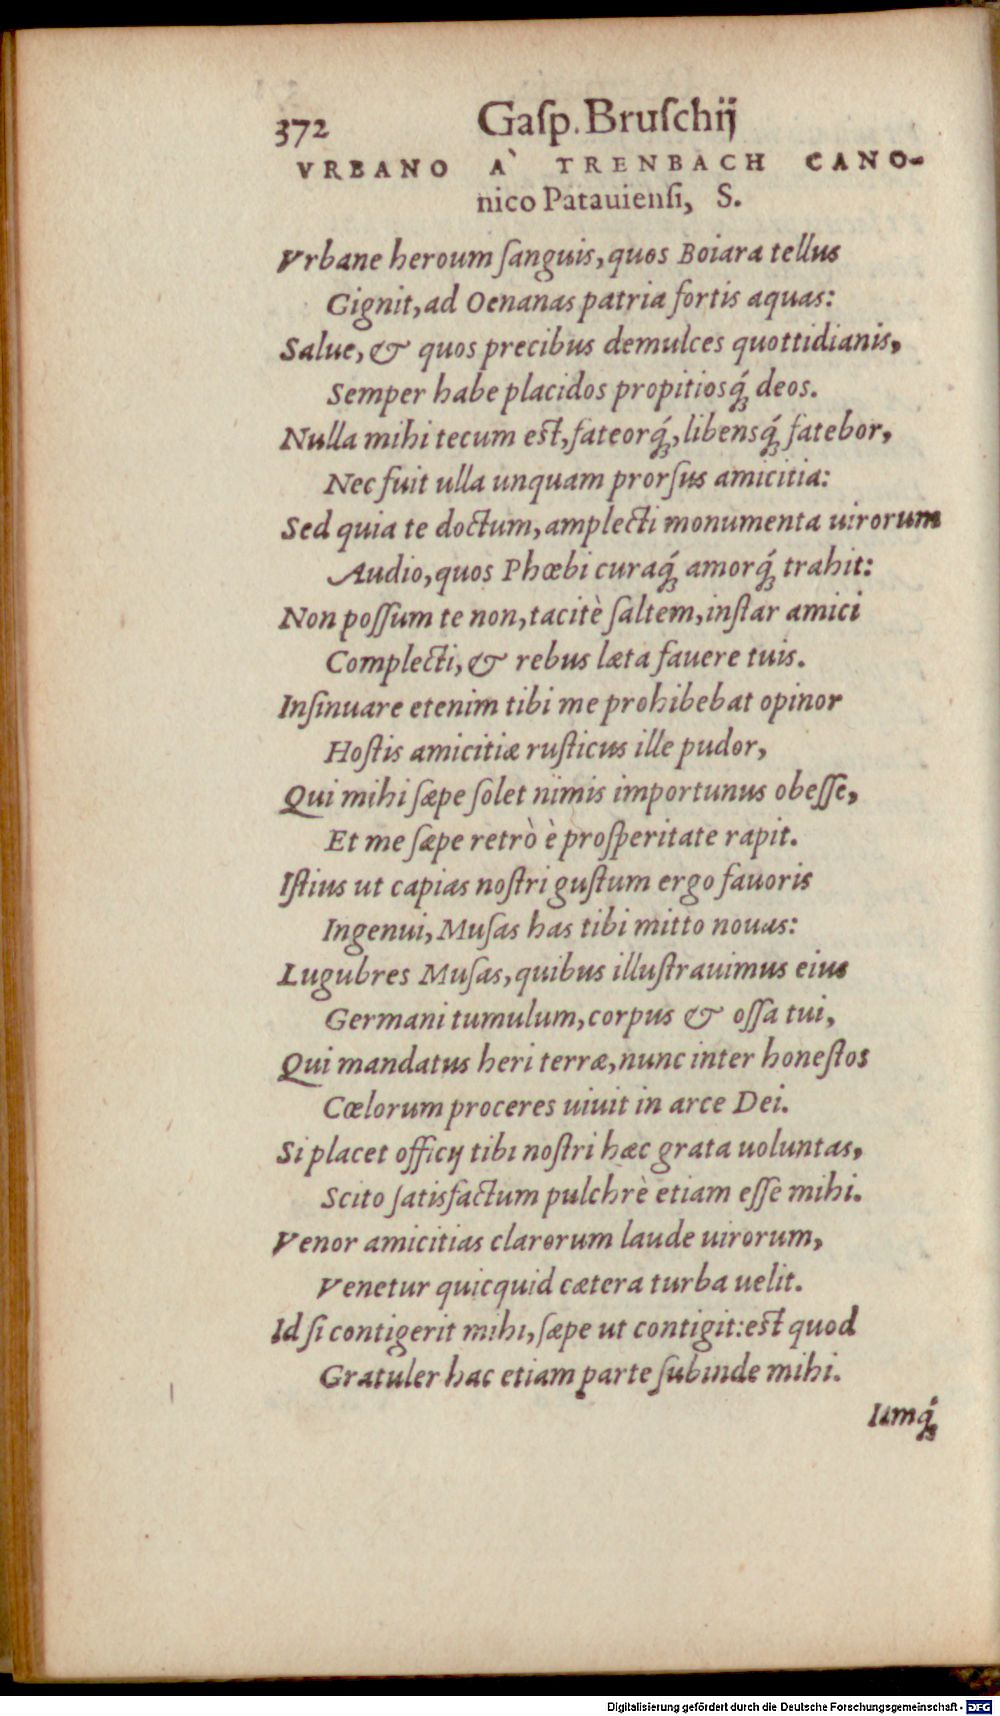 372 Gaſp. Bruſchij
VRBANO A` TRENBACH CANO-
nico Patauienſi, S.
Vrbane heroum ſanguis, quos Boiara tellus
Gignit, ad Oenanas patria fortis aquas:
Salue, & quos precibus demulces quottidianis,
Semper habe placidos propitiosq́; deos.
Nulla mihi tecum est, fateorq́;, libensq́; fatebor,
Nec fuit ulla unquam prorſus amicitia:
Sed quia te doctum, amplecti monumenta uirorum
Audio, quos Phœbi curaq́; amorq́; trahit:
Non poſſum te non, tacitè ſaltem, inſtar amici
Complecti, & rebus læta fauere tuis.
Inſinuare etenim tibi me prohibebat opinor
Hoſtis amicitiæ ruſticus ille pudor,
Qui mihi ſæpe ſolet nimis importunus obeſſe,
Et me ſæpe retrò è proſperitate rapit.
Iſtius ut capias noſtri guſtum ergo fauoris
Ingenui, Muſas has tibi mitto nouas:
Lugubres Muſas, quibus illuſtrauimus eius
Germani tumulum, corpus & oſſa tui,
Qui mandatus heri terræ, nunc inter honeſtos
Cœlorum proceres uiuit in arce Dei.
Si placet officij tibi noſtri hæc grata uoluntas,
Scito ſatisfactum pulchrè etiam eſſe mihi.
Venor amicitias clarorum laude uirorum,
Venetur quicquid cætera turba uelit.
Id ſi contigerit mihi, ſæpe ut contigit: est quod
Gratuler hac etiam parte ſubinde mihi.
Iamq́;
Digitalisierung gefördert durch die Deutsche Forschungsgemeinschaft - DFG